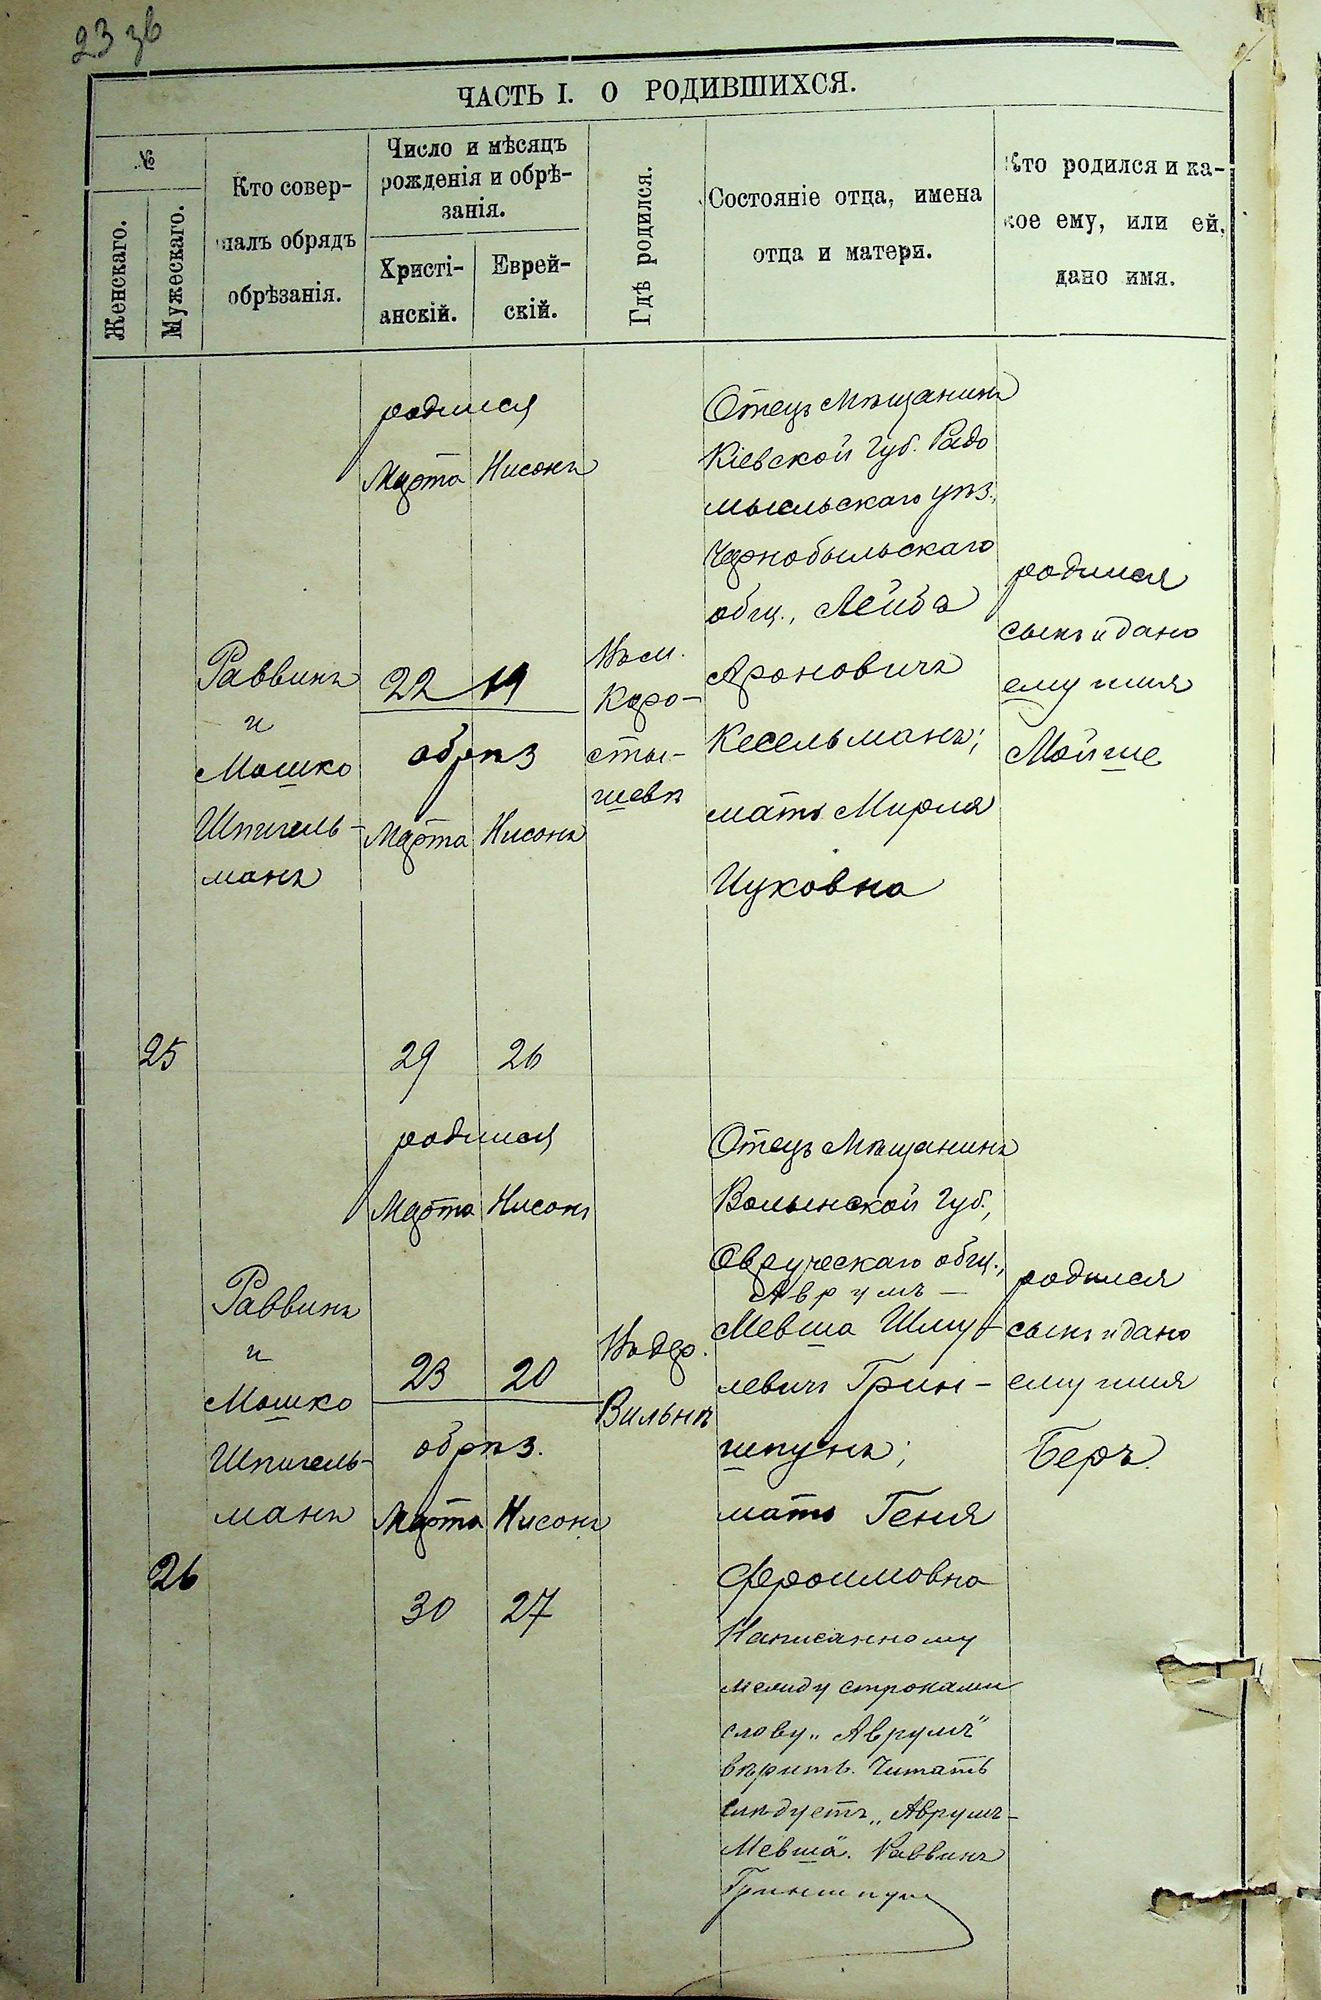 23 зв
ЧАСТЬ I. О РОДИВШИХСЯ.
№
Женскаго.
Мужескаго.
Кто совер-
шалъ обрядъ
обрѣзанія.
Число и мѣсяцъ
рожденія и обрѣ-
занія.
Христі-
анскій.
Еврей-
скій.
Гдѣ родился.
Состояніе отца, имена
отца и матери.
Кто родился и ка-
кое ему, или ей,
дано имя.
25
Раввинъ
и
Мошко
Шпигель-
манъ
родился
Марта Нисонъ
22 19
обрѣз
Марта Нисонъ
29 26
Въ м.
Коро-
сты-
шевѣ
Отецъ Мѣщанинъ
Кіевской губ. Радо
мысльскаго уѣз.,
Чернобыльскаго
общ., Лейба
Ароновичъ
Кесельманъ;
мать Мирля
Ицковна
родился
сынъ и дано
ему имя
Мойше
26
Раввинъ
и
Мошко
Шпигель-
манъ
родился
Марта Нисонъ
23 20
обрѣз.
Марта Нисонъ
30 27
Въ дер.
Вильнѣ
Отецъ Мѣщанинъ
Волынской губ.,
Овруческаго общ.,
Аврумъ-
Мевша Шму-
левичъ Грин-
шпунъ;
мать Геня
Фроимовна
Написанному
между строками
слову „Аврумъ"
вѣрить. Читать
слѣдуетъ „Аврумъ-
Мевша". Раввинъ
Гриншпун
родился
сынъ и дано
ему имя
Беръ.